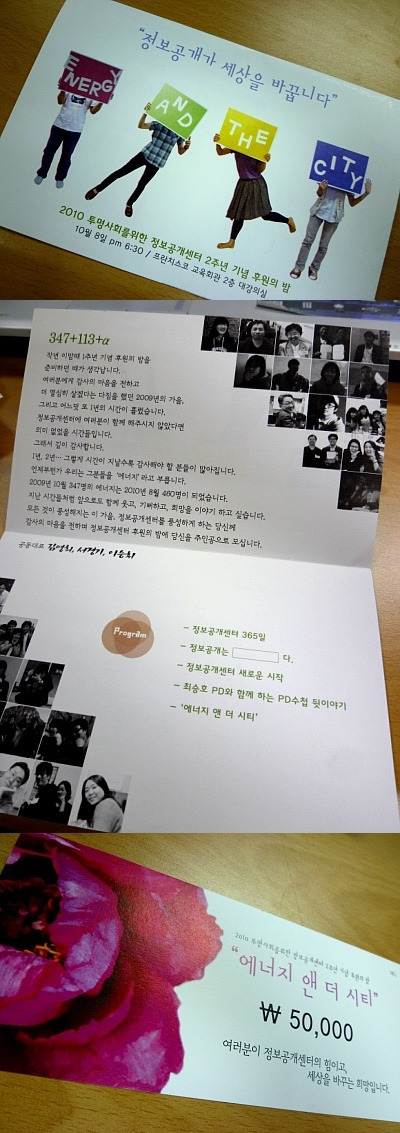 “정보공개가 세상을 바꿉니다”
ENERGY
AND
THE
CITY
2010 투명사회를위한 정보공개센터 2주년 기념 후원의 밤
10월 8일 pm 6:30 / 프란치스코 교육회관 2층 대강의실
347+113+α
작년 이맘때 1주년 기념 후원의 밤을
준비하던 때가 생각납니다.
여러분에게 감사의 마음을 전하고
더 열심히 살겠다는 다짐을 했던 2009년의 가을,
그리고 어느덧 또 1년의 시간이 흘렀습니다.
정보공개센터에 여러분이 함께 해주시지 않았다면
의미 없었을 시간들입니다.
그래서 깊이 감사합니다.
1년, 2년… 그렇게 시간이 지날수록 감사해야 할 분들이 많아집니다.
언제부턴가 우리는 그분들을 ‘에너지’라고 부릅니다.
2009년 10월 347명의 에너지는 2010년 8월 460명이 되었습니다.
지난 시간들처럼 앞으로도 함께 웃고, 기뻐하고, 희망을 이야기 하고 싶습니다.
모든 것이 풍성해지는 이 가을, 정보공개센터를 풍성하게 하는 당신께
감사의 마음을 전하며 정보공개센터 후원의 밤에 당신을 주인공으로 모십니다.
공동대표 김영희, 서경기, 이승휘
Program
– 정보공개센터 365일
– 정보공개는 다.
– 정보공개센터 새로운 시작
– 최승호 PD와 함께 하는 PD수첩 뒷이야기
– ‘에너지 앤 더 시티’
2010 투명사회를위한 정보공개센터 2주년 기념 후원의 밤
“에너지 앤 더 시티”
₩ 50,000
여러분이 정보공개센터의 힘이고,
세상을 바꾸는 희망입니다.